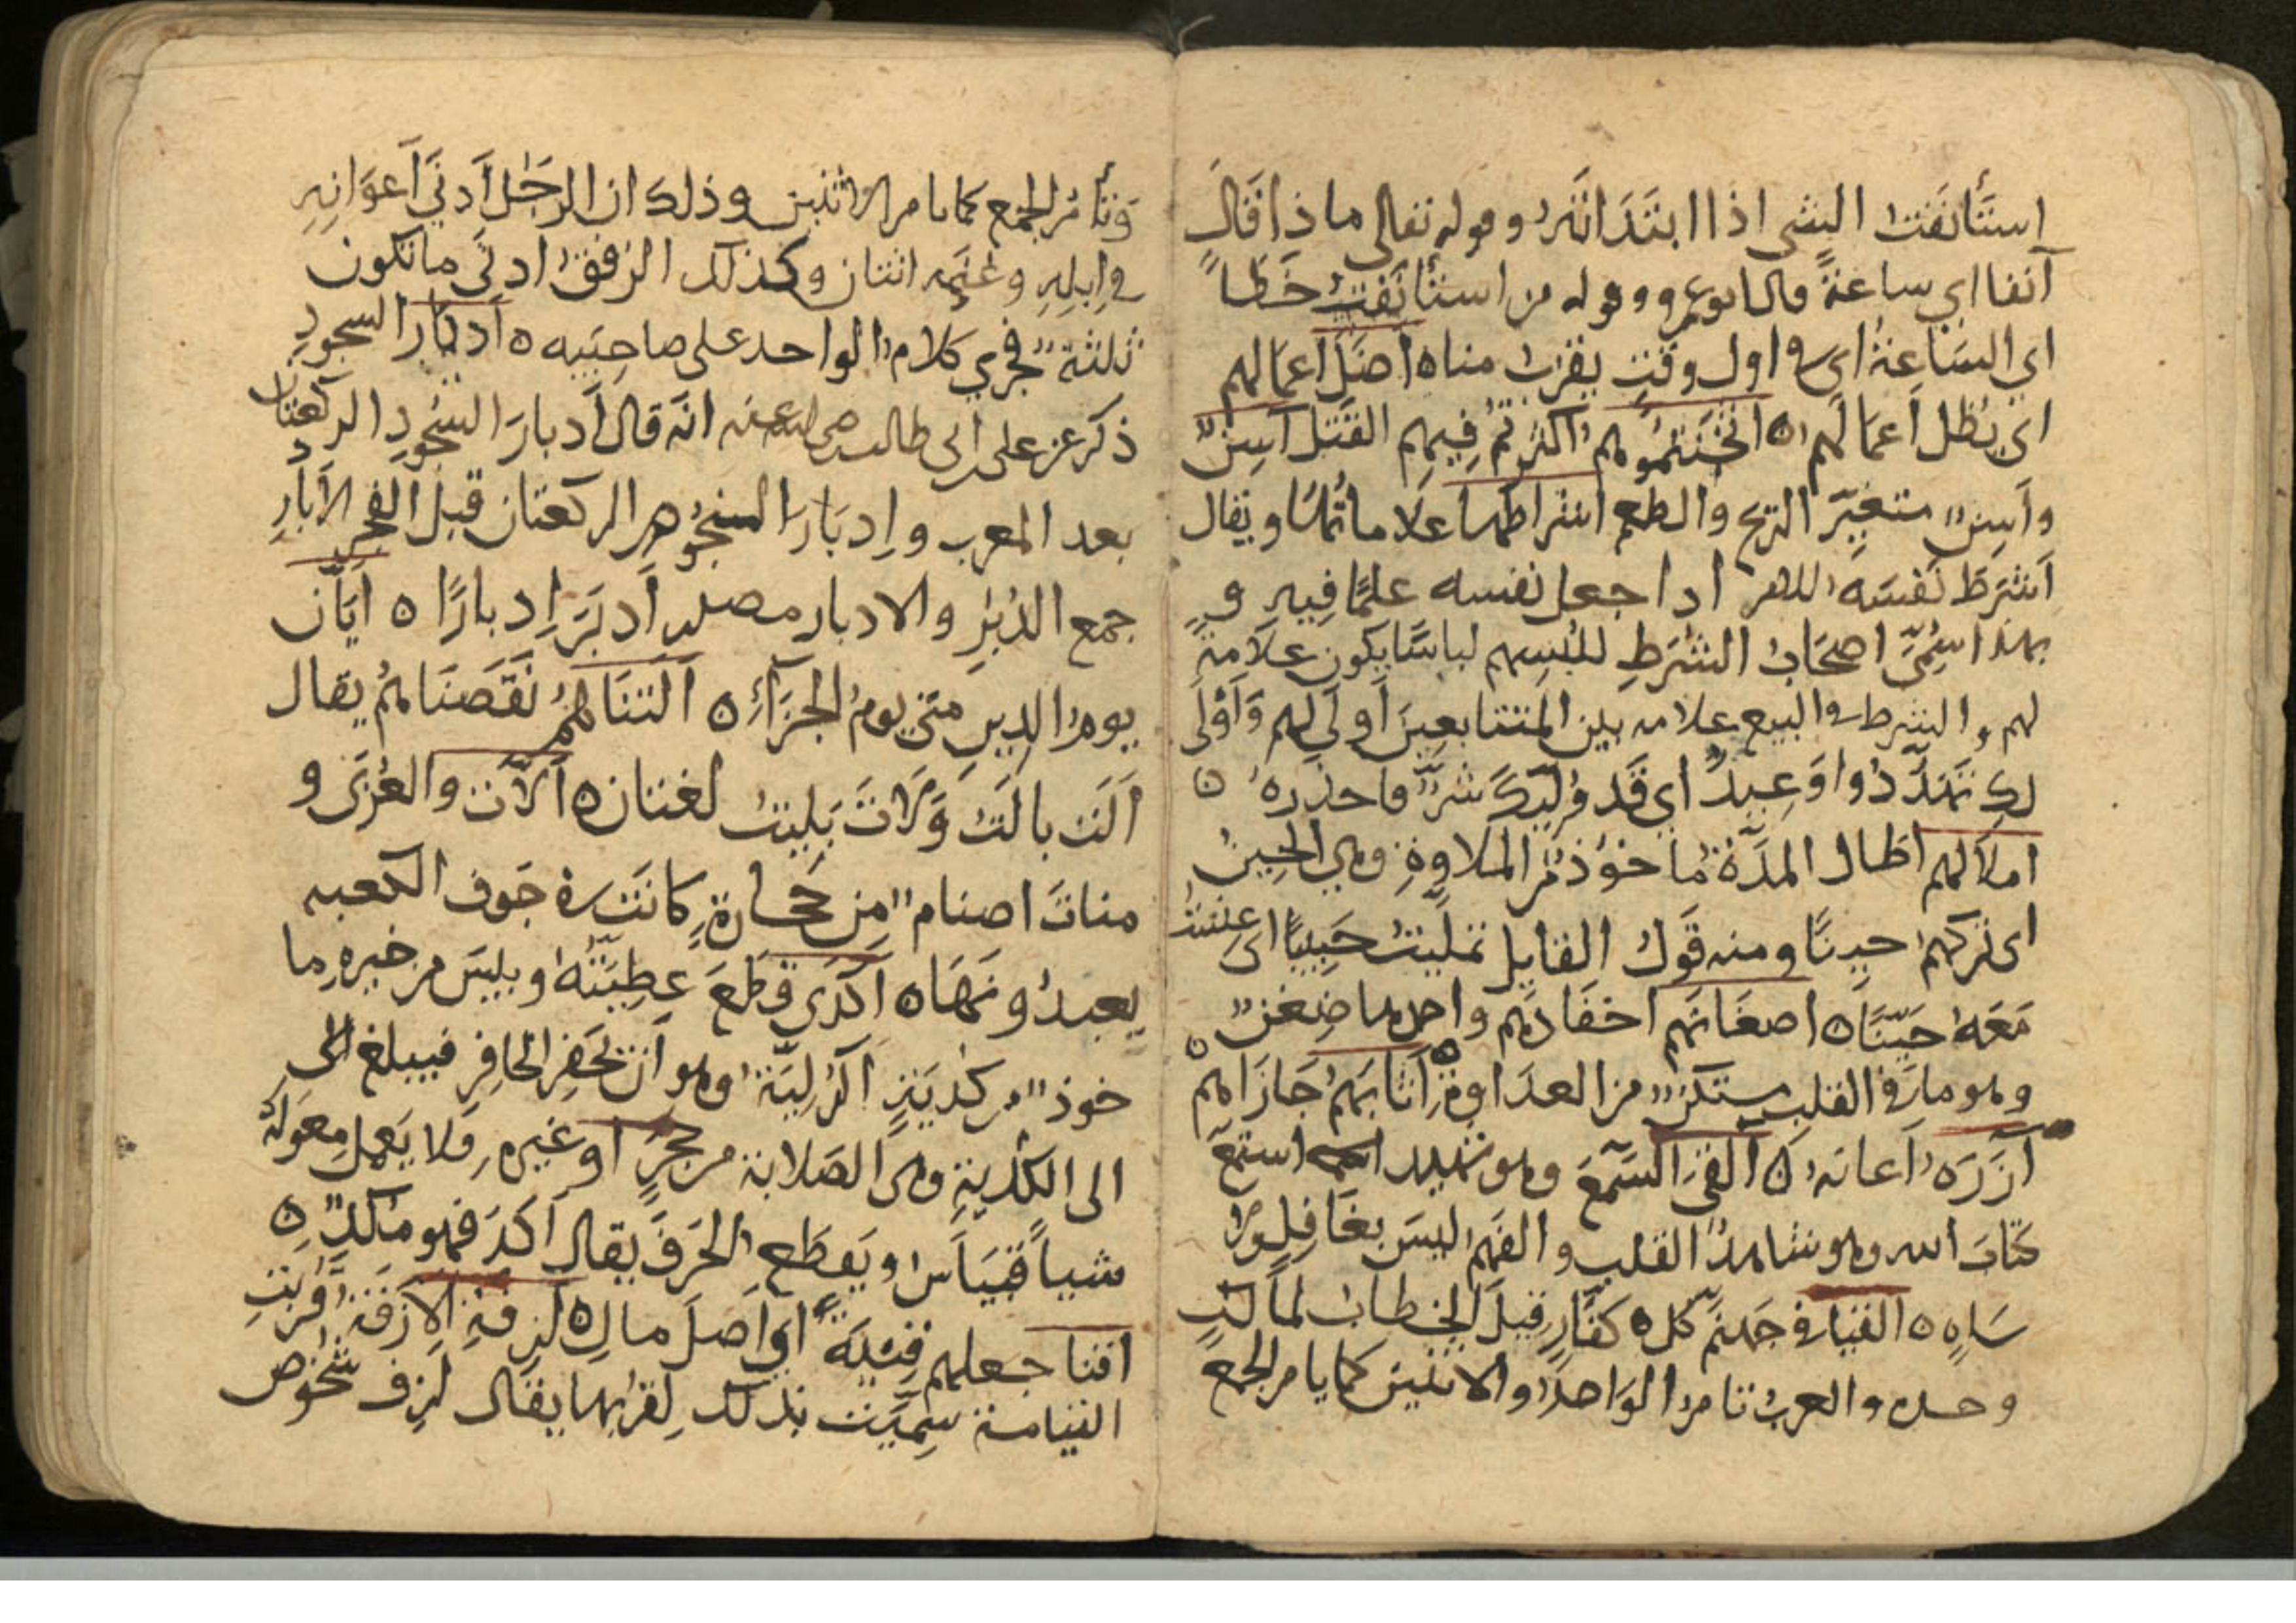 استأنفت الشي اذا ابتدانه وقوله تعالى ماذا قال
آنفا اي ساعة قال ابوعمرو وهو له من استأنفت خطا
اي الساعة اي في اول وقت يقرب مناه اضل اعمالهم
اي بطل اعمالهم ه اثخنتموهم اكثرتم فيهم القتل آسن
وآسن متغير الريح والطعم اشراطها علاماتها ويقال
اشرط نفسه للامر اذا جعل نفسه علما فيه و
بهذا سمي اصحاب الشرط للبسهم لباسا يكون علامة
لهم والشرط في البيع علامه بين المتتابعين اولى لهم واولى
لك تهدد واوعيد اي قد وليك شر فاحذره ه
املا لهم اطال المدة ماخوذ من الملاوة وهي الحين
اي تركهم حينا ومنه قول القايل تمليت حبيبا اي عشت
معه حينا ه اضغانهم احقادهم واحدها ضغن
وهو ما في القلب مستكن من العداوة اثابهم جازاهم ه
آزره اعانه ه القى السمع وهو شهيد استمع
كتاب الله وهو شاهد القلب والفهم ليس بغافل ولا
ساه ه القيا في جهنم كل كفار قيل الخطاب لمالك
وحده والعرب تامر الواحد والاثنين كما يامر الجمع
وتأمر الجمع كما يامر الاثنين وذلك ان الرجل ادنى اعوانه
في ابله وغنمه اثنان وكذلك الرفقة ادنى ما تكون
ثلثة فجري كلام الواحد على صاحبيه ه ادبار السجود
ذكر عن على ابى طالب رضى الله عنه انه قال ادبار السجود الركعتان
بعد المغرب وادبار النجوم الركعتان قبل الفجر الادبار
جمع الدبر والادبار مصدر ادبر ادبارا ه ايان
يوم الدين متى يوم الجزاء ه التناهم نقصناهم يقال
الت يالت ولات يليت لغتان ه اللات والعزى و
مناة اصنام من حجارة كانت في جوف الكعبه
يعبدونها ه اكدى قطع عطيته ويبس من خيره ما
خوذ من كدية الركية وهو ان يحفر الحافر فيبلغ الى
الى الكدية وهى الصلابة من حجر او غيره فلا يعمل معوله
شيا فيياس ويقطع الحفر يقال اكد فهو مكد ه
اقنا جعلهم قنية اي اصل مال ه ازفة الازفة قربت
القيامة سميت بذلك لقربها يقال ازف شخوص